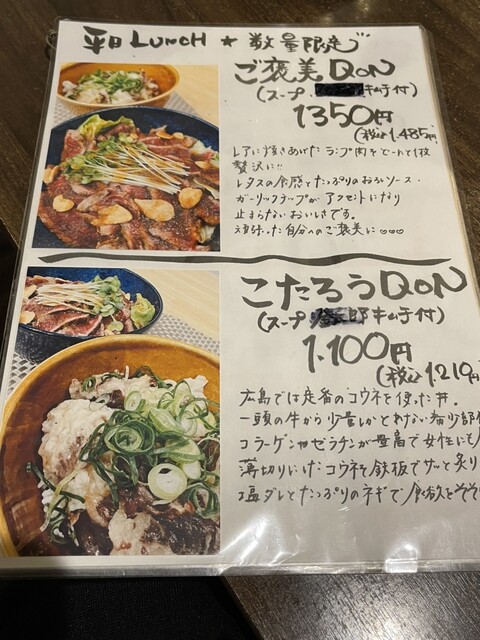 平日 LUNCH ★ 数量限定
ご褒美DON
(スープ 付)
1350円
(税込1,485円)
レアに焼きあげたランプ肉をどーんと1枚
贅沢に!!
レタスの食感とたっぷりのおろしソース・
ガーリックチップがアクセントになり
止まらないおいしさです。
頑張った自分へのご褒美に♡♡♡
こたろうDON
(スープ 付)
1,100円
(税込1,210円
広島では定番のコウネを使った丼。
一頭の牛から少量しかとれない希少部
コラーゲンやゼラチンが豊富で女性にも
薄切りにしたコウネを鉄板でサッと炙り
塩ダレとたっぷりのネギで食欲をそそ